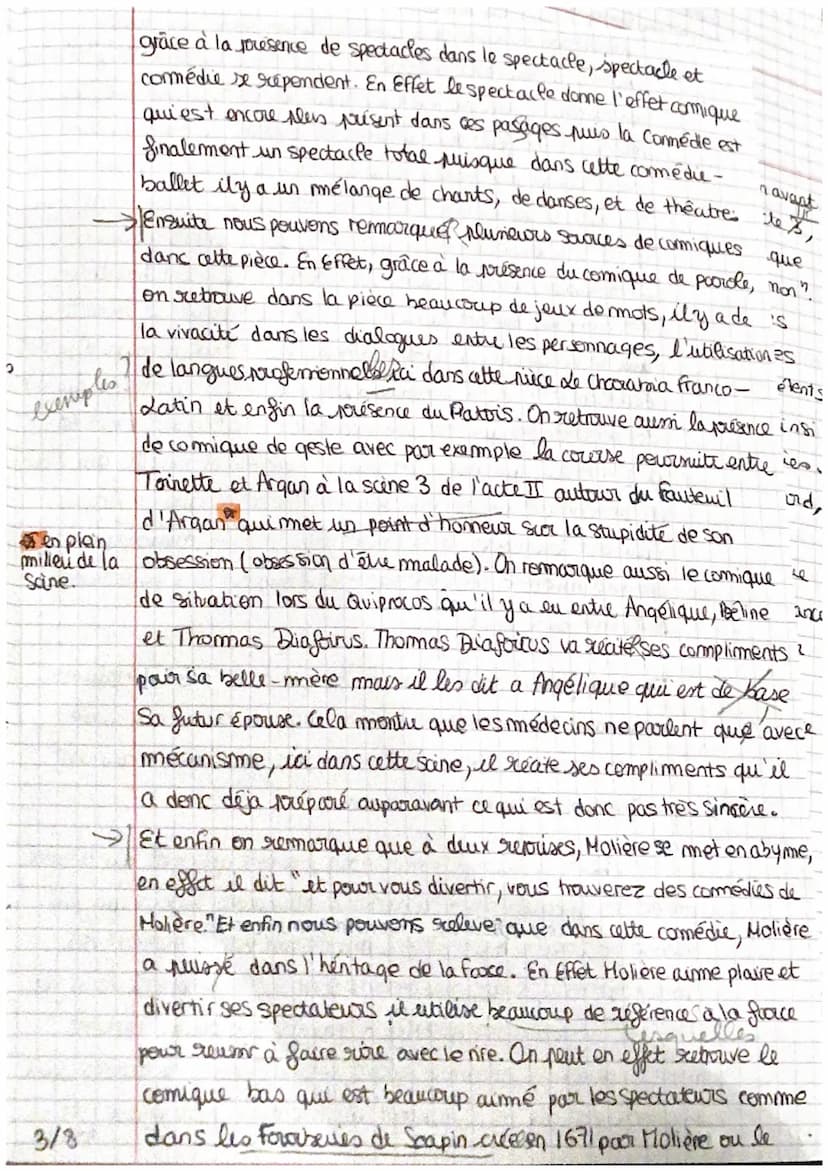 grâce à la présence de spectacles dans le spectacle, spectacle et
comédie se répendent. En Effet le spectacle donne l'effet comique
qui est encore plus présent dans ces passages puis la Comédie est
finalement un spectacle total puisque dans cette comédie-
ballet il y a un mélange de chants, de danses, et de théatre.
navant
→ Ensuite nous pouvons remarquer plusieurs sources de comiques
que
dans cette pièce. En Effet, grâce à la présence du comique de parole,
non".
on retrouve dans la pièce beaucoup de jeux de mots, il y a de
is
la vivacité dans les dialogues entre les personnages, l'utilisation
es
de langues professionnelles ici dans cette pièce le Charabia franco-
exemples?
élents
Latin et enfin la présence du Patois. On retrouve aussi la présence
insi
de comique de geste avec par exemple la course poursuite entre
ies.
Toinette et Argan à la scène 3 de l'acte II autour du fauteuil
ord,
d'Argan qui met un point d'honneur sur la stupidité de son
en plein
milieu de la
scène.
obsession (obsession d'être malade). On remarque aussi le comique
de situation lors du Quiprocos qu'il y a eu entre Angélique, Béline
et Thomas Diafoirus. Thomas Diafoirus va récité ses compliments
pour sa belle-mère mais il les dit a Angélique qui est de base
Sa futur épouse. Cela montre que les médecins ne parlent que avec
mécanisme, ici dans cette scène, il récite ses compliments qu'il
a donc déja préparé auparavant ce qui est donc pas très sincère.
→ Et enfin on remarque que à deux reprises, Molière se met en abyme,
en effet il dit "et pour vous divertir, vous trouverez des comédies de
Molière." Et enfin nous pouvons relever que dans cette comédie, Molière
a puisé dans l'héritage de la farce. En Effet Molière aime plaire et
divertir ses spectateurs il utilise beaucoup de référence a la farce
lesquelles
pour reussir à faire rire avec le rire. On peut en effet retrouve le
comique bas qui est beaucoup aimé par les spectateurs comme
dans les Fourberies de Scapin créée en 1671 par Molière ou le
3/8